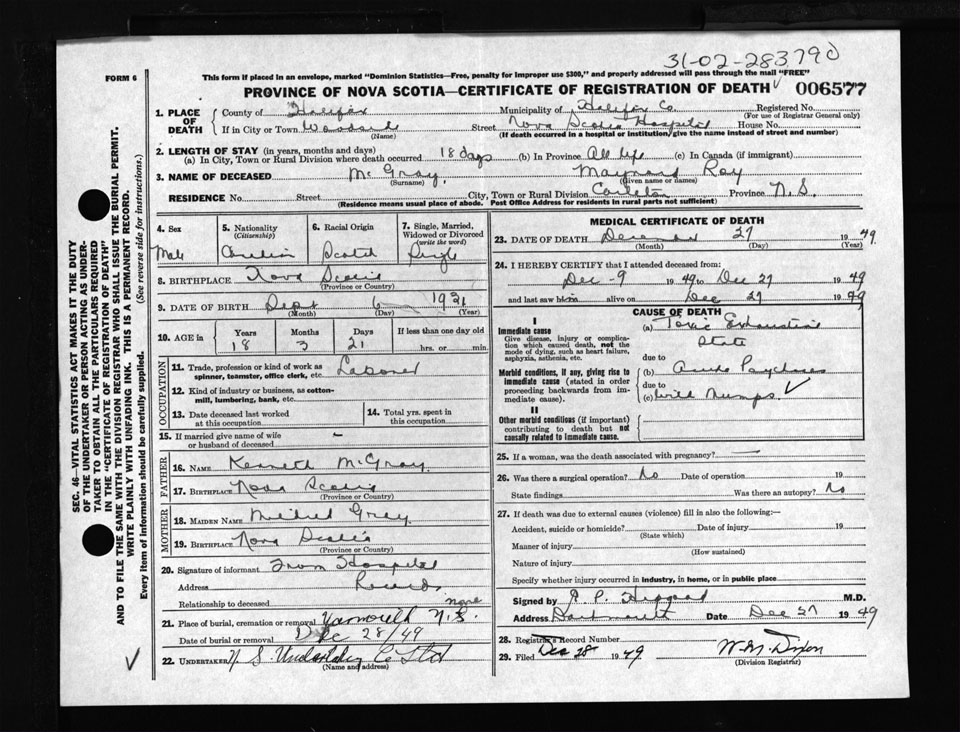 31-02-283790
FORM 6
This form if placed in an envelope, marked "Dominion Statistics—Free, penalty for improper use $300," and properly addressed will pass through the mail "FREE"
PROVINCE OF NOVA SCOTIA—CERTIFICATE OF REGISTRATION OF DEATH 006577
1. PLACE OF DEATH
County of Halifax Municipality of Halifax Co. Registered No.
(For use of Registrar General only)
If in City or Town Woodside Street Nova Scotia Hospital House No.
(Name) (If death occurred in a hospital or institution, give the name instead of street and number)
2. LENGTH OF STAY (in years, months and days)
(a) In City, Town or Rural Division where death occurred 18 days (b) In Province All life (c) In Canada (if immigrant)
3. NAME OF DECEASED McGray, Maynard Roy
(Surname) (Given name or names)
RESIDENCE No. Street City, Town or Rural Division Carleton Province N.S.
(Residence means usual place of abode. Post Office Address for residents in rural parts not sufficient)
4. Sex 5. Nationality (Citizenship) 6. Racial Origin 7. Single, Married, Widowed or Divorced (write the word)
Male Canadian Scotch Single
8. BIRTHPLACE Nova Scotia
(Province or Country)
9. DATE OF BIRTH Sept 6 1931
(Month) (Day) (Year)
10. AGE in Years Months Days If less than one day old
18 3 21 hrs. or min.
OCCUPATION
11. Trade, profession or kind of work as spinner, teamster, office clerk, etc. Laborer
12. Kind of industry or business, as cotton-mill, lumbering, bank, etc.
13. Date deceased last worked at this occupation
14. Total yrs. spent in this occupation
15. If married give name of wife or husband of deceased –
FATHER
16. NAME Kenneth McGray.
17. BIRTHPLACE Nova Scotia
(Province or Country)
MOTHER
18. MAIDEN NAME Gray
19. BIRTHPLACE Nova Scotia
(Province or Country)
20. Signature of informant From Hospital
Address Records
Relationship to deceased none
21. Place of burial, cremation or removal Yarmouth N.S.
Date of burial or removal Dec 28/49
22. UNDERTAKER N S. Undertaking Co Ltd
(Name and address)
MEDICAL CERTIFICATE OF DEATH
23. DATE OF DEATH December 27 1949
(Month) (Day) (Year)
24. I HEREBY CERTIFY that I attended deceased from:
Dec - 9 1949 to Dec 27 1949
and last saw him alive on Dec 27 1949
CAUSE OF DEATH
I
Immediate cause
Give disease, injury or complication which caused death, not the mode of dying, such as heart failure, asphyxia, asthenia, etc.
(a) Toxic Exhaustive
State
due to
Morbid conditions, if any, giving rise to immediate cause (stated in order proceeding backwards from immediate cause).
(b) Acute Psychoses
due to
(c) with Mumps.
II
Other morbid conditions (if important) contributing to death but not causally related to immediate cause.
25. If a woman, was the death associated with pregnancy? —
26. Was there a surgical operation? No Date of operation 19
State findings Was there an autopsy? No
27. If death was due to external causes (violence) fill in also the following:—
Accident, suicide or homicide? Date of injury 19
(State which)
Manner of injury
(How sustained)
Nature of injury
Specify whether injury occurred in industry, in home, or in public place
Signed by M.D.
Address Dartmouth Date Dec 27 1949
28. Registrar's Record Number
29. Filed Dec 28 1949 W.M. Dixon
(Division Registrar)
SEC. 46—VITAL STATISTICS ACT MAKES IT THE DUTY
OF THE UNDERTAKER OR PERSON ACTING AS UNDER-
TAKER TO OBTAIN ALL THE PARTICULARS REQUIRED
IN THE "CERTIFICATE OF REGISTRATION OF DEATH"
AND TO FILE THE SAME WITH THE DIVISION REGISTRAR WHO SHALL ISSUE THE BURIAL PERMIT.
WRITE PLAINLY WITH UNFADING INK. THIS IS A PERMANENT RECORD.
Every item of information should be carefully supplied. (See reverse side for instructions.)